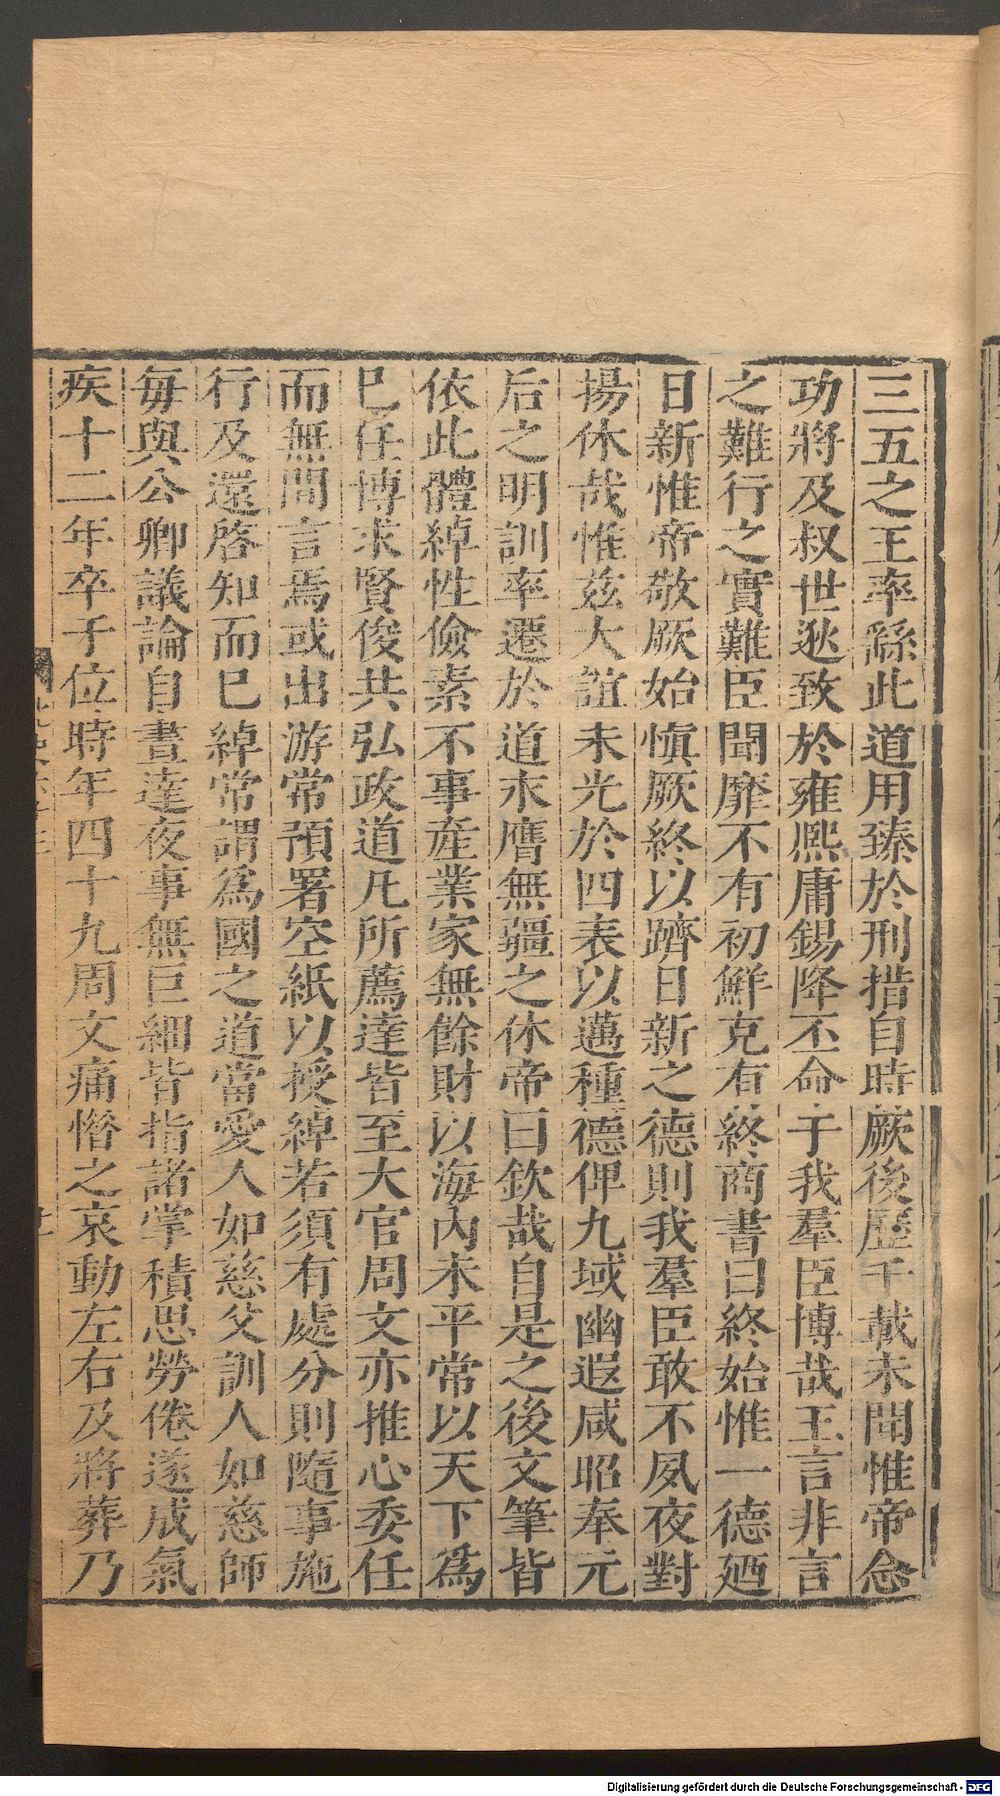 三五之王率繇此道用臻於刑措自時厥後歷千載未聞惟帝念
功將及叔世逖致於雍熙庸錫降丕命于我羣臣博哉王言非言
之難行之實難臣聞靡不有初鮮克有終商書曰終始惟一德廼
日新惟帝敬厥始慎厥終以躋日新之德則我羣臣敢不夙夜對
揚休哉惟茲大誼未光於四表以邁種德俾九域幽遐咸昭奉元
后之明訓率遷於道永膺無疆之休帝曰欽哉自是之後文筆皆
依此體綽性儉素不事産業家無餘財以海內未平常以天下爲
已任博求賢俊共弘政道凡所薦達皆至大官周文亦推心委任
而無間言焉或出游常預署空紙以授綽若須有處分則隨事施
行及還啓知而已綽常謂爲國之道當愛人如慈父訓人如慈師
每與公卿議論自晝達夜事無巨細皆指諸掌積思勞倦遂成氣
疾十二年卒于位時年四十九周文痛惜之哀動左右及將葬乃
Digitalisierung gefördert durch die Deutsche Forschungsgemeinschaft - DFG